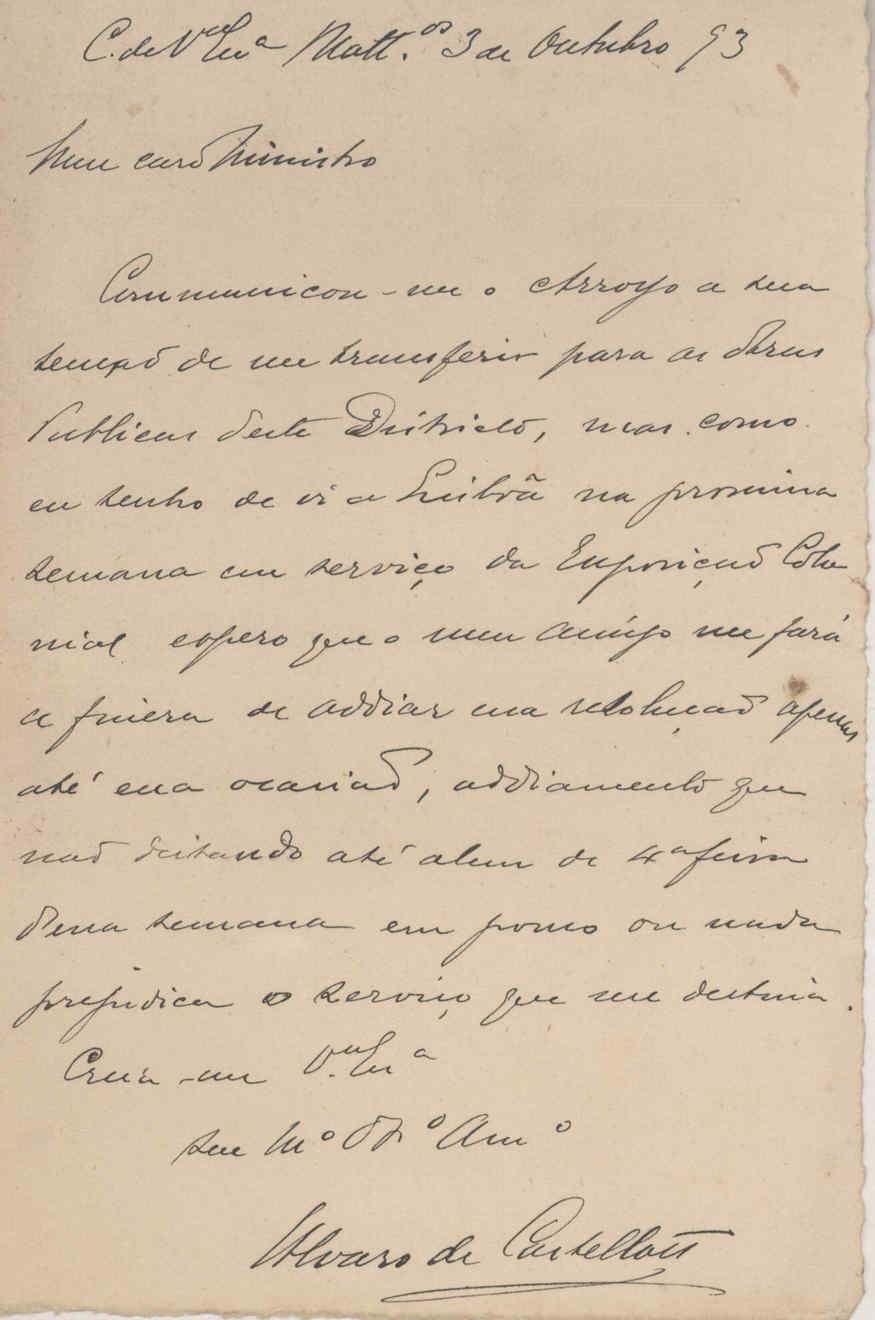 C. de V.ª Ex.ª Matt.ºs 3 de Outubro 93
Meu caro Ministro
Communicou-me o Arroyo a sua
tenção de me transferir para as Obras
Publicas deste Districto, mas como
eu tenho de ir a Lisbôa na proxima
semana em serviço da Exposição Colo
nial espero que o meu amigo me fará
a fineza de addiar essa resolução apenas
até essa occasião, addiamento que
não deitando até alem de 4ª feira
d'essa semana em pouco ou nada
prejudica o serviço que me destina.
Creia-me V. Ex.ª
seu Mº Obº Amº
Alvaro de Castellões